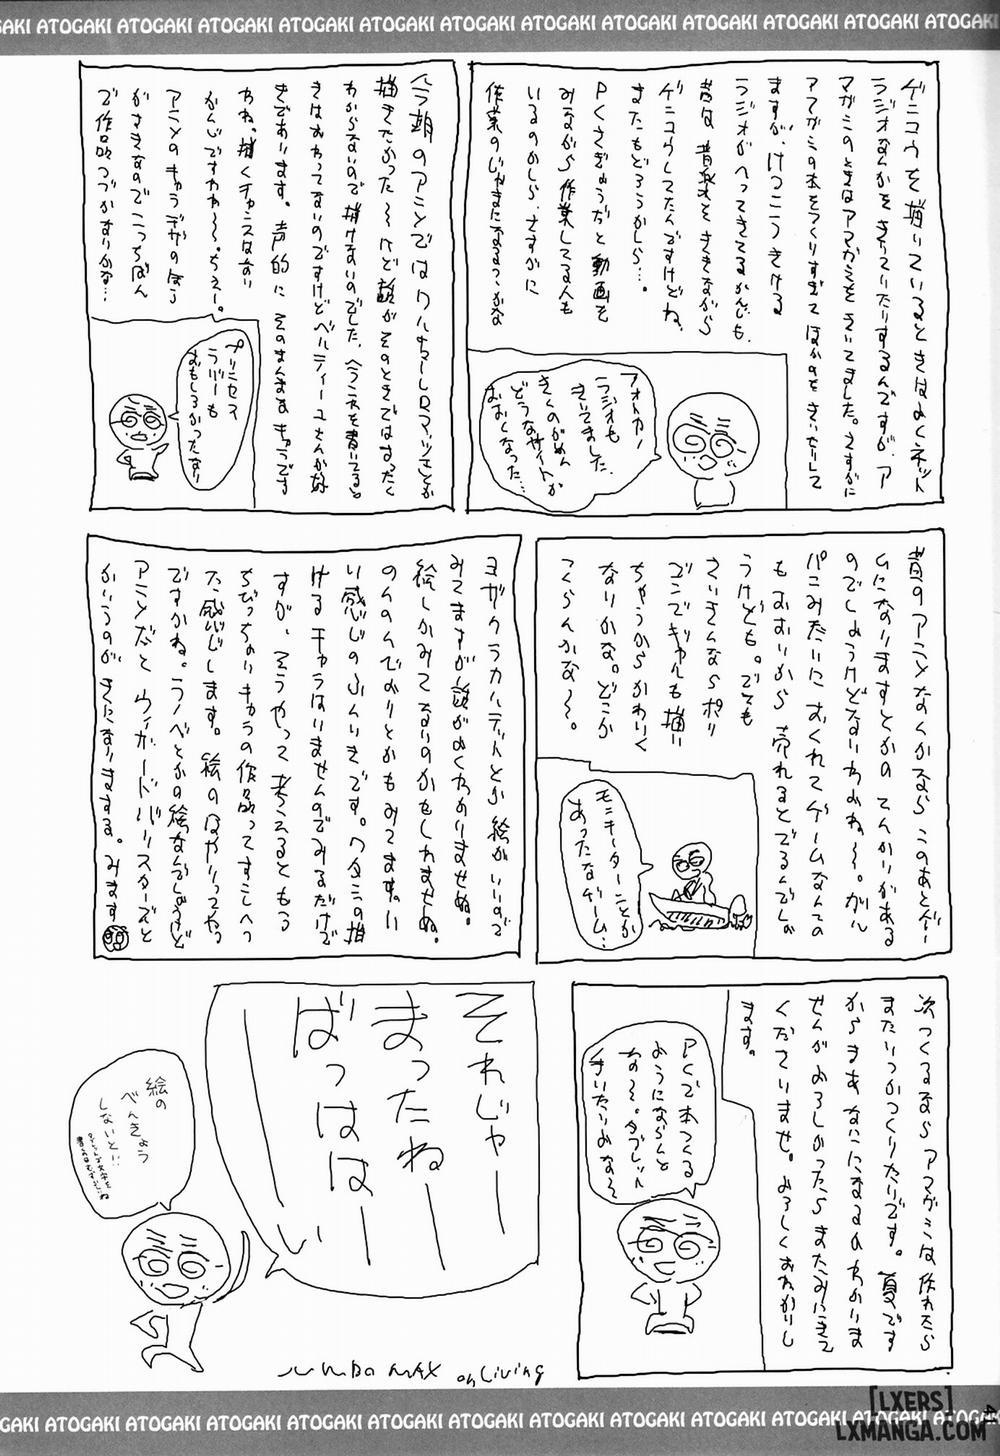 ATOGAKI ATOGAKI ATOGAKI ATOGAKI ATOGAKI ATOGAKI ATOGAKI ATOGAKI ATOGAKI
ゲンコウを描いているときはよくネット
ラジオなんかをきいていたりするんですが、ア
マガミのときはアマガミをきいてました。さすがに
アマガミの本をつくりすぎてほかのをきいたりして
ますが、けっこうきける
ラジオがへってきてるかんじも、
昔は音楽をききながら
ゲンコウしてたんですけどね、
またもどろうかしら…。
PCさぎょうだと動画を
みながら作業してる人も
いるのかしら、さすがに
作業のじゃまになるっつかな
フォトカノ
ラジオも
きいてました。
きくのがめん
どうなサイトが
おおくなった…
今期のアニメでは
描きたかった〜けど話がそのときではまったく
わからないので描けないのでした、
きはおわってないのですけどベルティーユさんが好
きであります。声的にそのまんまなキャラです
わね。描くチャンスはない
かんじですわね〜。ちぇー。
アニメのキャラデザのほう
がすきなのでこっちばん
で作品つづかないかな…
プリンセス
ラバーも
おもしろかったなり
昔のアニメなんかなら このあとゲー
ムになりますとかの てんかいがある
のでしょうけどないわよね〜。ガル
パンみたいにおくれてゲームなんての
もおそいから 売れるとでるんでしょ
うけども。でも
さいきんなら ポリ
ゴンでギャルも描い
ちゃうからかわいく
なりかな。どこか
つくらんかな〜。
モニキーターンとか
あったなゲーム…
ヨザクラカルテットとか絵がいいので
みてますが話がよくわかりませぬ。
絵しかみてないのかもしれませぬ。
のんのんびよりとかもみてます。い
い感じのふんいきです。ワタシの描
けるキャラはいませんのでみるだけで
すが、そうやって考えるともう
ちびっちゃいキャラの作品ってすこしへっ
た感じします。絵のはやりってやつ
ですかね。ラノベとかの絵なんでしょうけど
アニメだとウィザードバリスターズと
かいうのがきになりまする。みます
次つくるなら アマガミは作れたら
またいつかつくりたいです。夏です
からまあ なにになるかわかりま
せんがよろしかったらまたみにきて
くださいませ。よろしくおねがいし
ます。
PCで本つくる
ようにならんと
な〜。タブレット
きいたりよな〜
それじゃー
まったねー
ばっはは
ーい
絵の
べんきょう
しないと!!
JUMBO MAX
on Living
[LXERS]
LXMANGA.COM
41
ATOGAKI ATOGAKI ATOGAKI ATOGAKI ATOGAKI ATOGAKI ATOGAKI ATOGAKI ATOGAKI